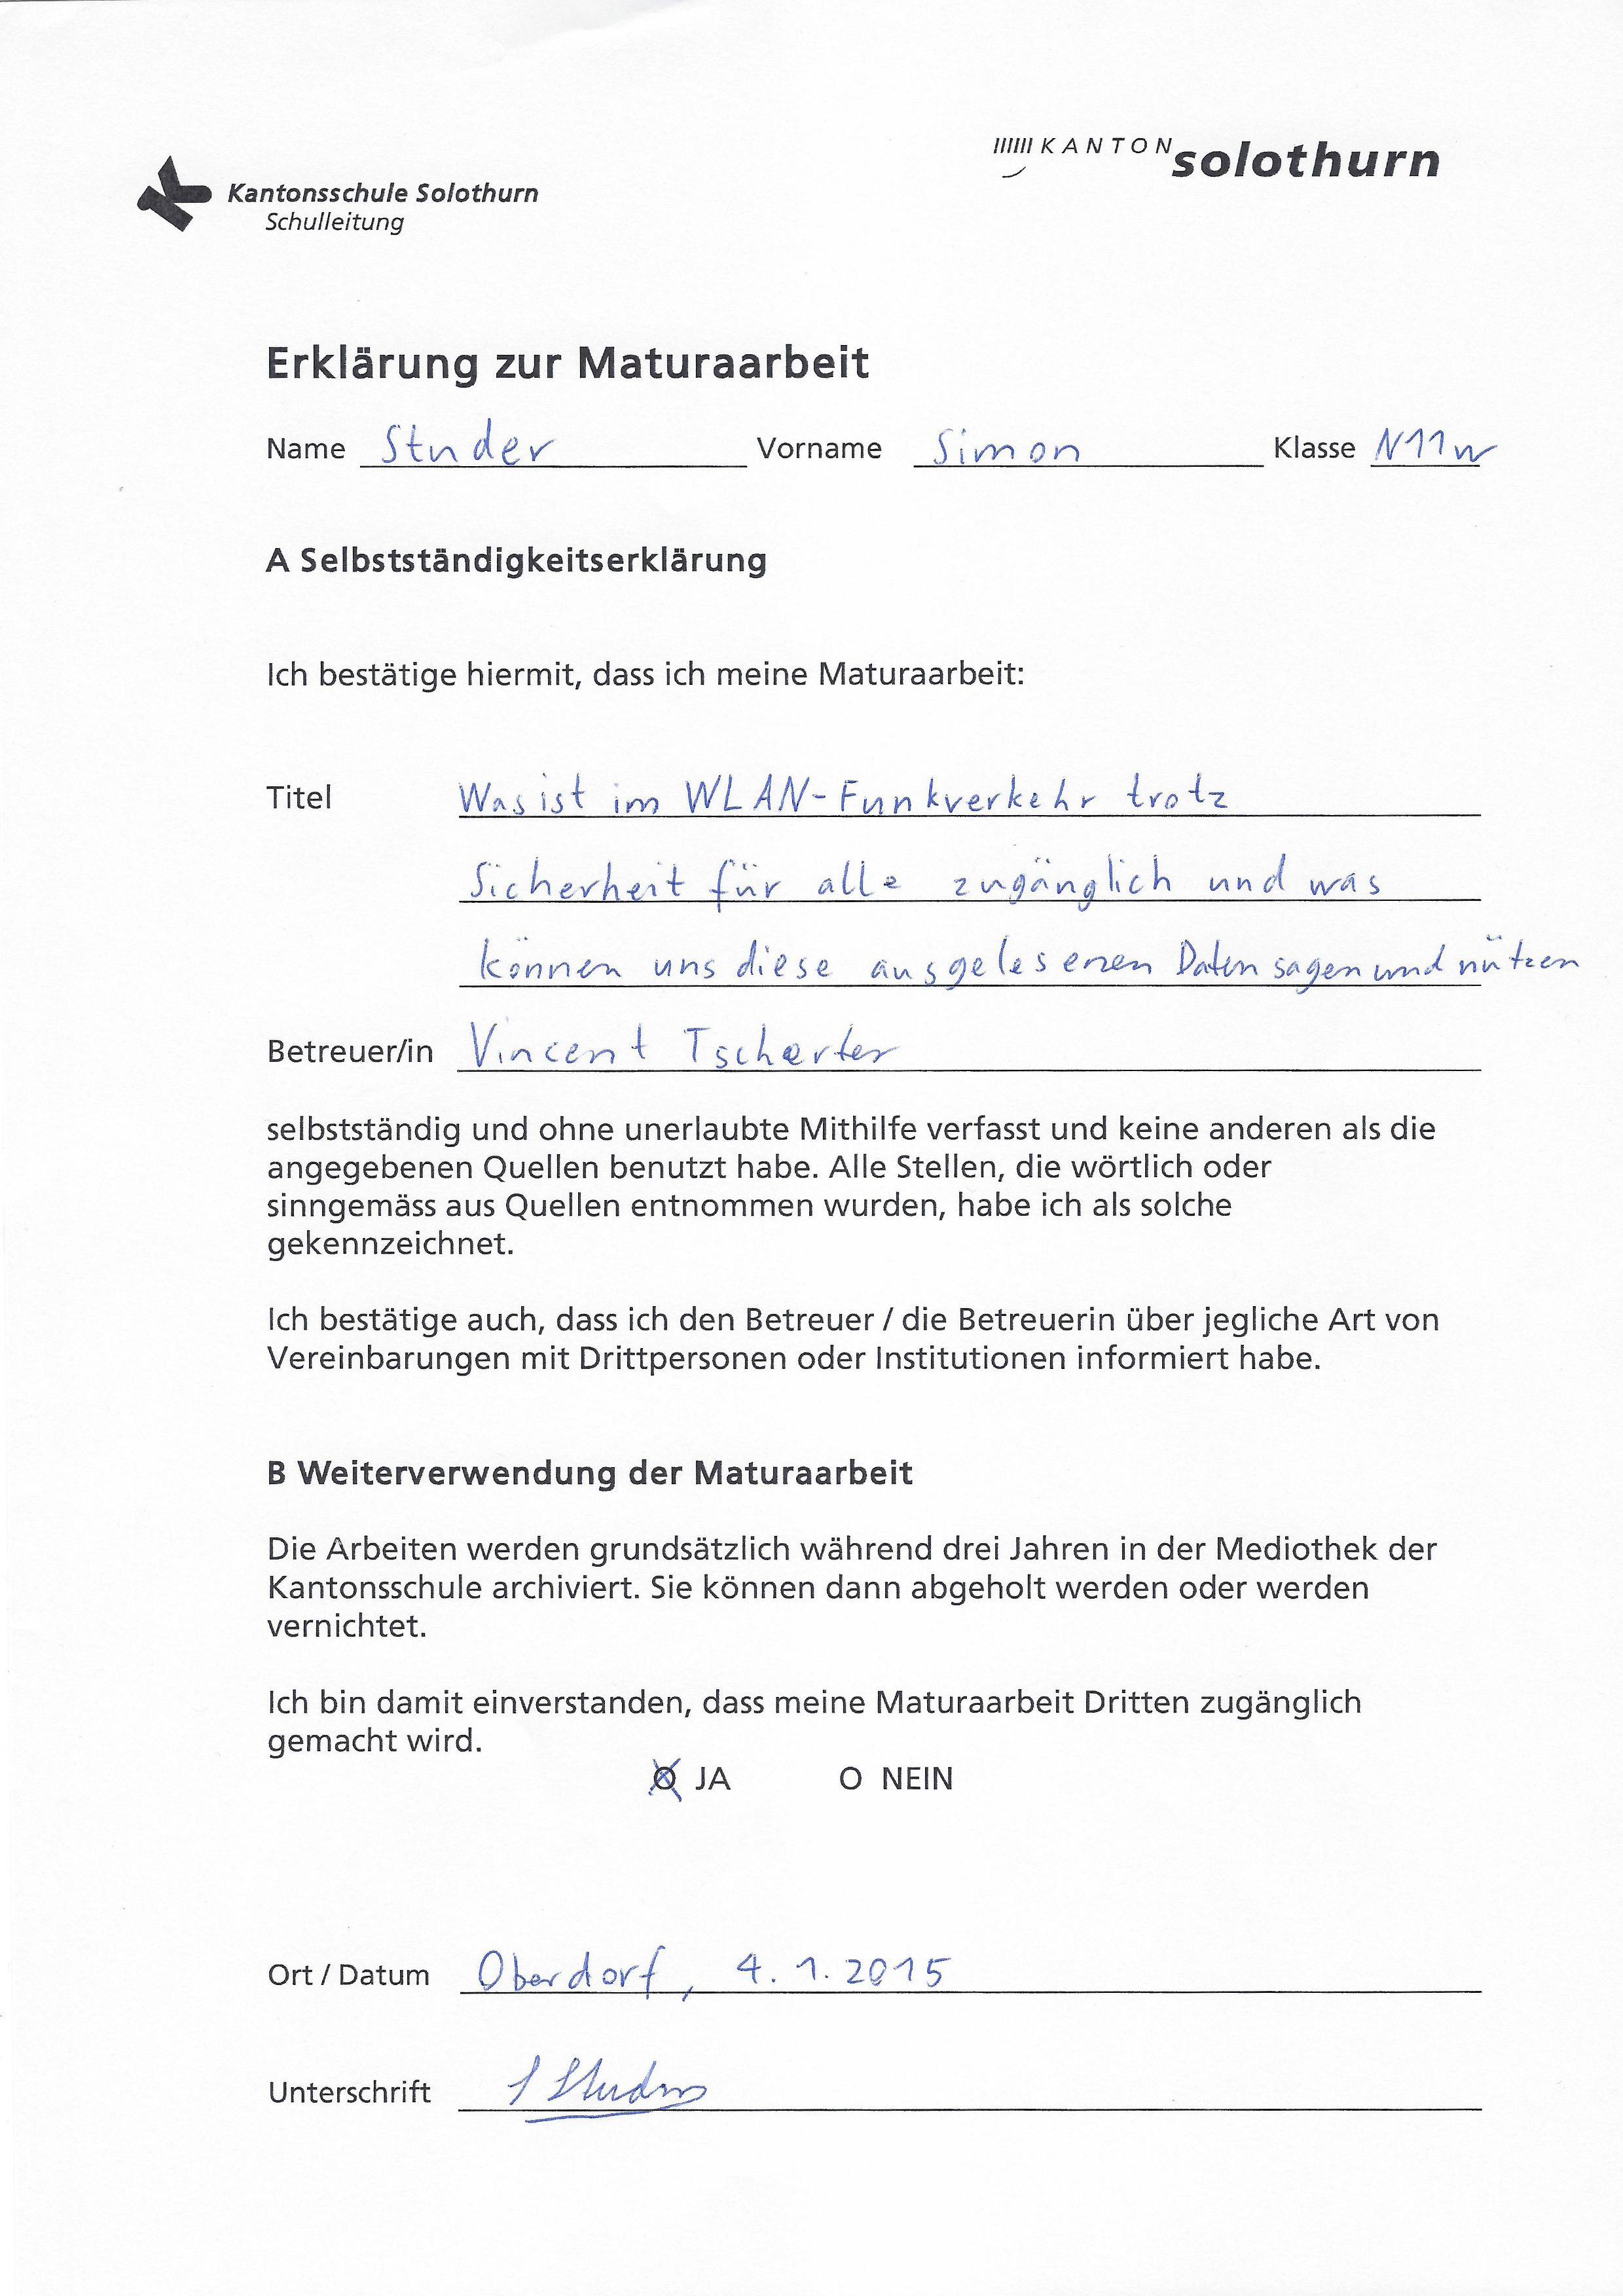 KANTON solothurn
Kantonsschule Solothurn
Schulleitung
Erklärung zur Maturaarbeit
Name Studer Vorname Simon Klasse N11w
A Selbstständigkeitserklärung
Ich bestätige hiermit, dass ich meine Maturaarbeit:
Titel Was ist im WLAN-Funkverkehr trotz
Sicherheit für alle zugänglich und was
können uns diese ausgelesenen Daten sagen und nützen
Betreuer/in Vincent Tscherter
selbstständig und ohne unerlaubte Mithilfe verfasst und keine anderen als die
angegebenen Quellen benutzt habe. Alle Stellen, die wörtlich oder
sinngemäss aus Quellen entnommen wurden, habe ich als solche
gekennzeichnet.
Ich bestätige auch, dass ich den Betreuer / die Betreuerin über jegliche Art von
Vereinbarungen mit Drittpersonen oder Institutionen informiert habe.
B Weiterverwendung der Maturaarbeit
Die Arbeiten werden grundsätzlich während drei Jahren in der Mediothek der
Kantonsschule archiviert. Sie können dann abgeholt werden oder werden
vernichtet.
Ich bin damit einverstanden, dass meine Maturaarbeit Dritten zugänglich
gemacht wird.
O JA O NEIN
Ort / Datum Oberdorf, 4.1.2015
Unterschrift S Studer